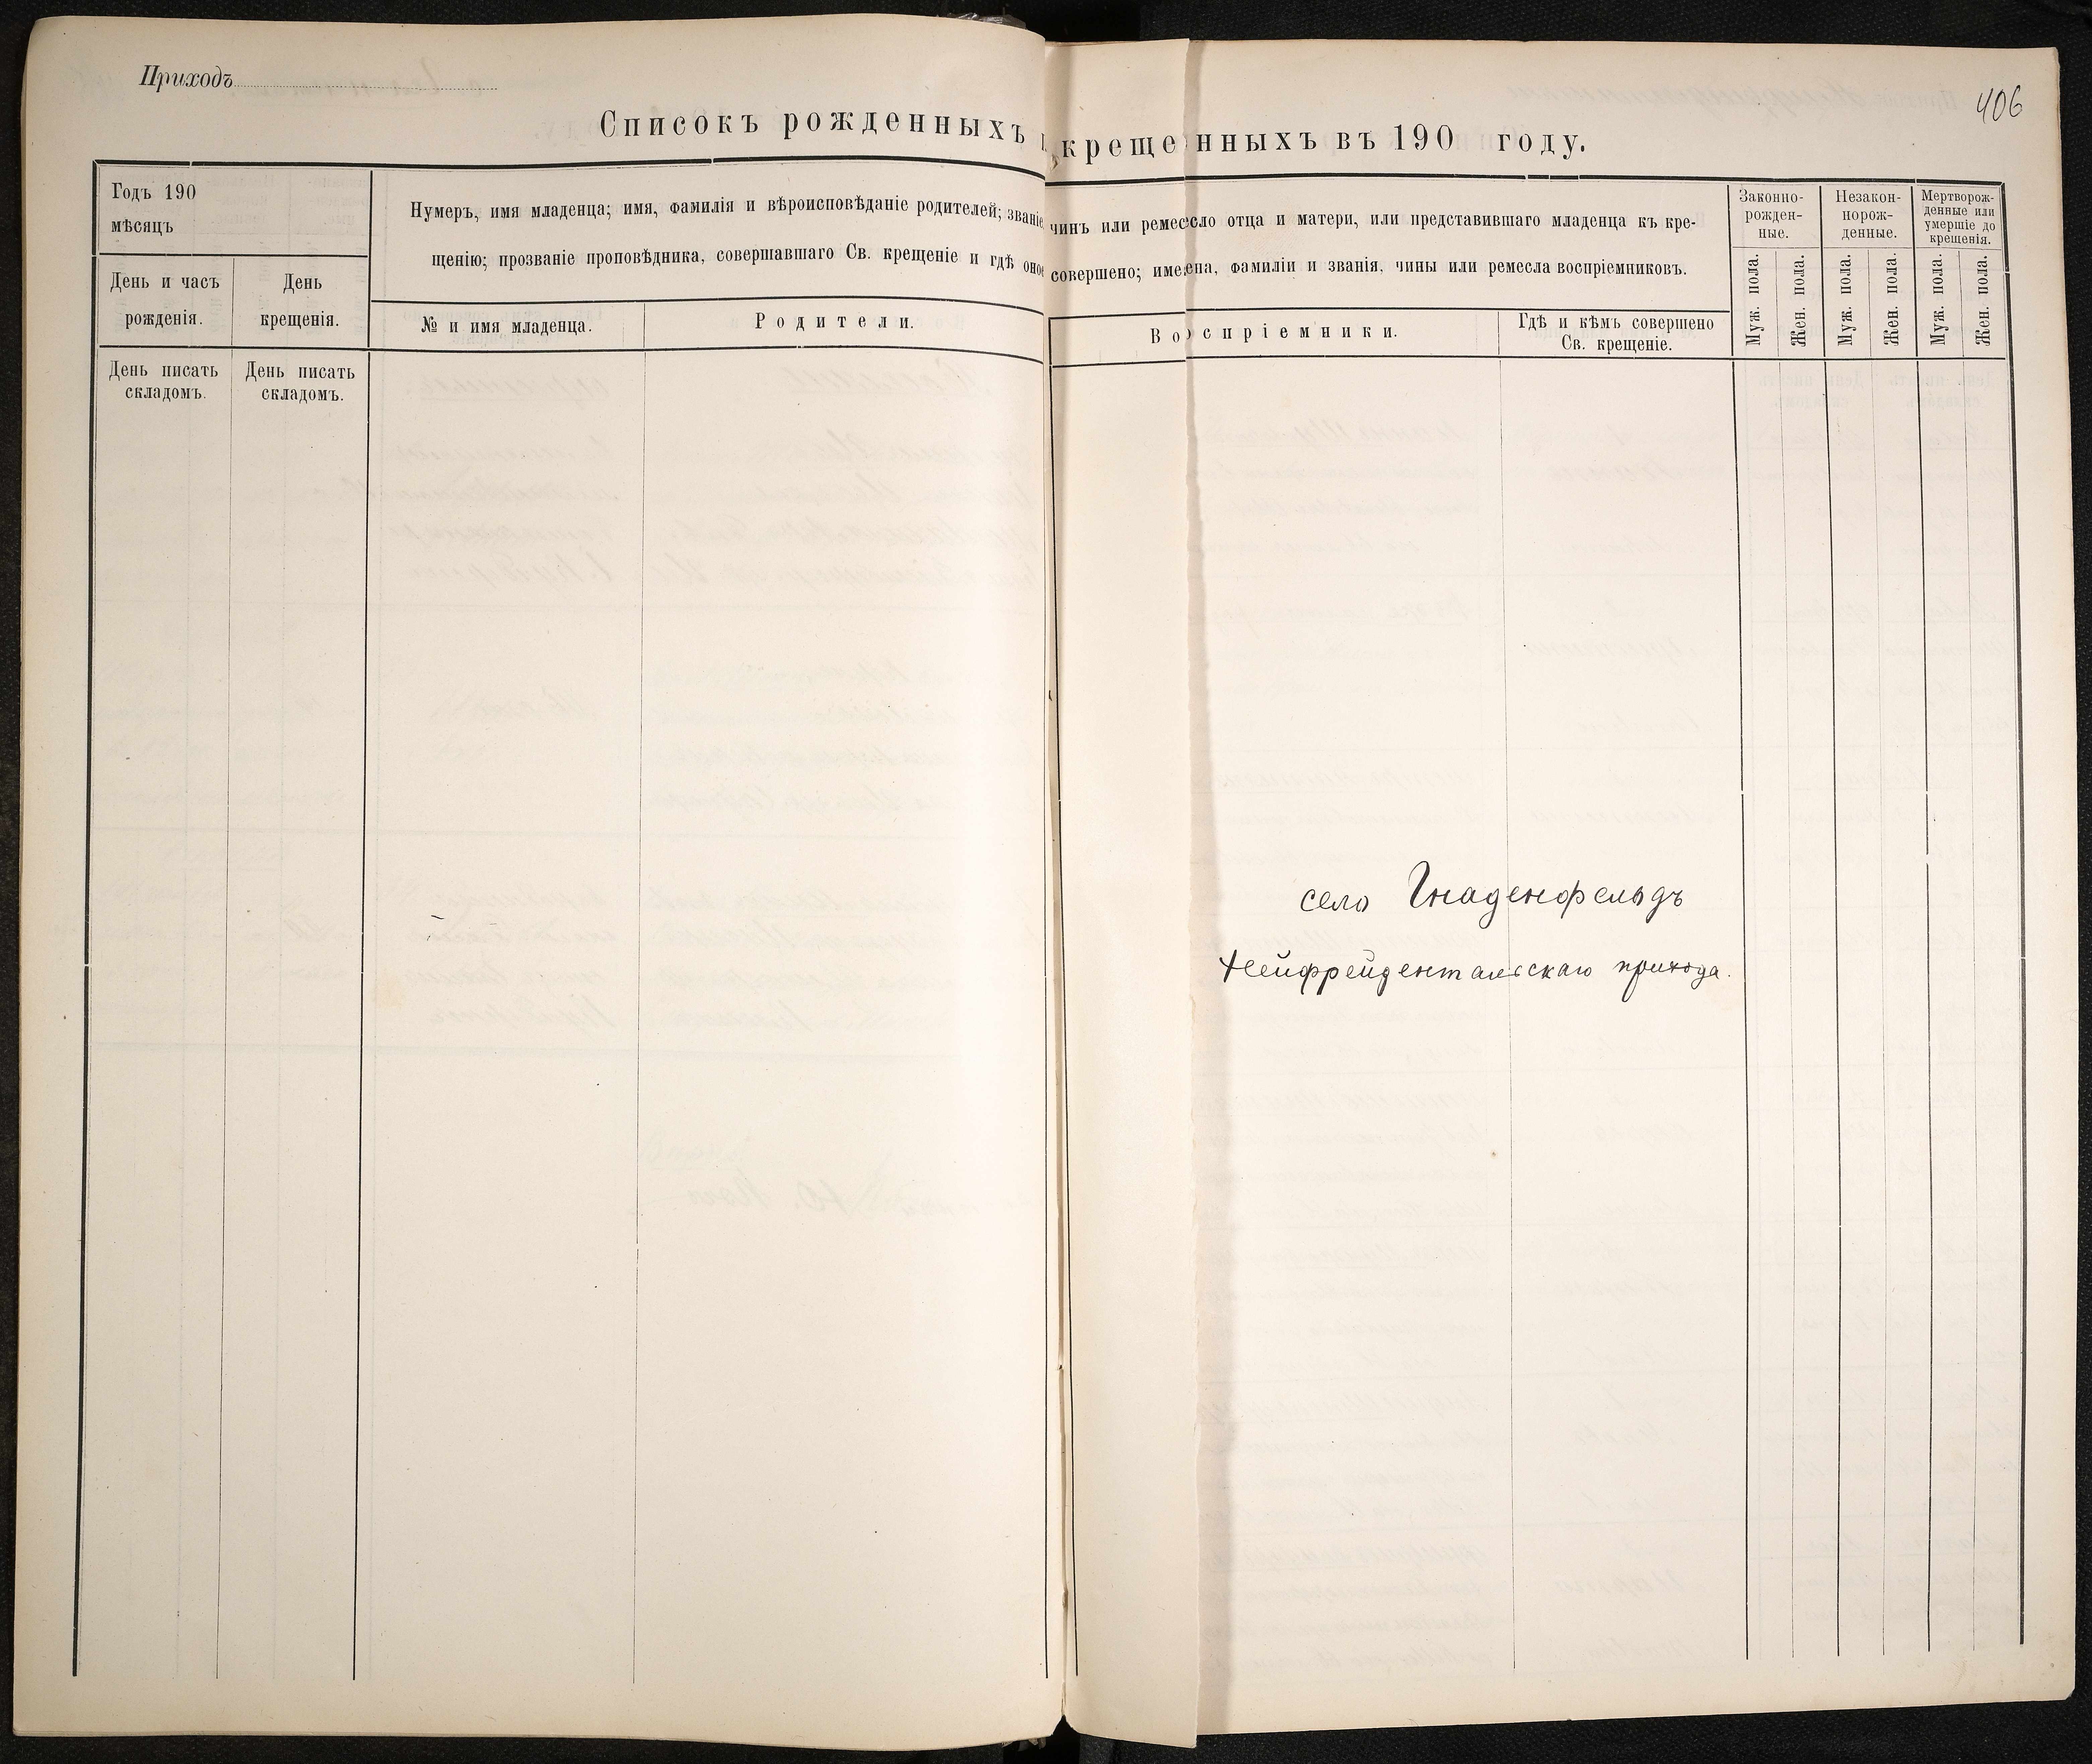 Приходъ
406
Списокъ рожденныхъ крещенныхъ въ 190 году.
Годъ 190
мѣсяцъ
День и часъ
рожденія.
День
крещенія.
Нумеръ, имя младенца; имя, фамилія и вѣроисповѣданіе родителей; званіе чинъ или ремесло отца и матери, или представившаго младенца къ кре-
щенію; прозваніе проповѣдника, совершавшаго Св. крещеніе и гдѣ оное совершено; имена, фамиліи и званія, чины или ремесла воспріемниковъ.
№ и имя младенца.
Родители.
Воспріемники.
Гдѣ и кѣмъ совершено
Св. крещеніе.
Законно-
рожден-
ные.
Незакон-
норож-
денные.
Мертворож-
денные или
умершіе до
крещенія.
Муж. пола.
Жен. пола.
Муж. пола.
Жен. пола.
Муж. пола.
Жен. пола.
День писать
складомъ.
День писать
складомъ.
село Гнаденфельдъ
Нейфрейдентальскаго прихода.